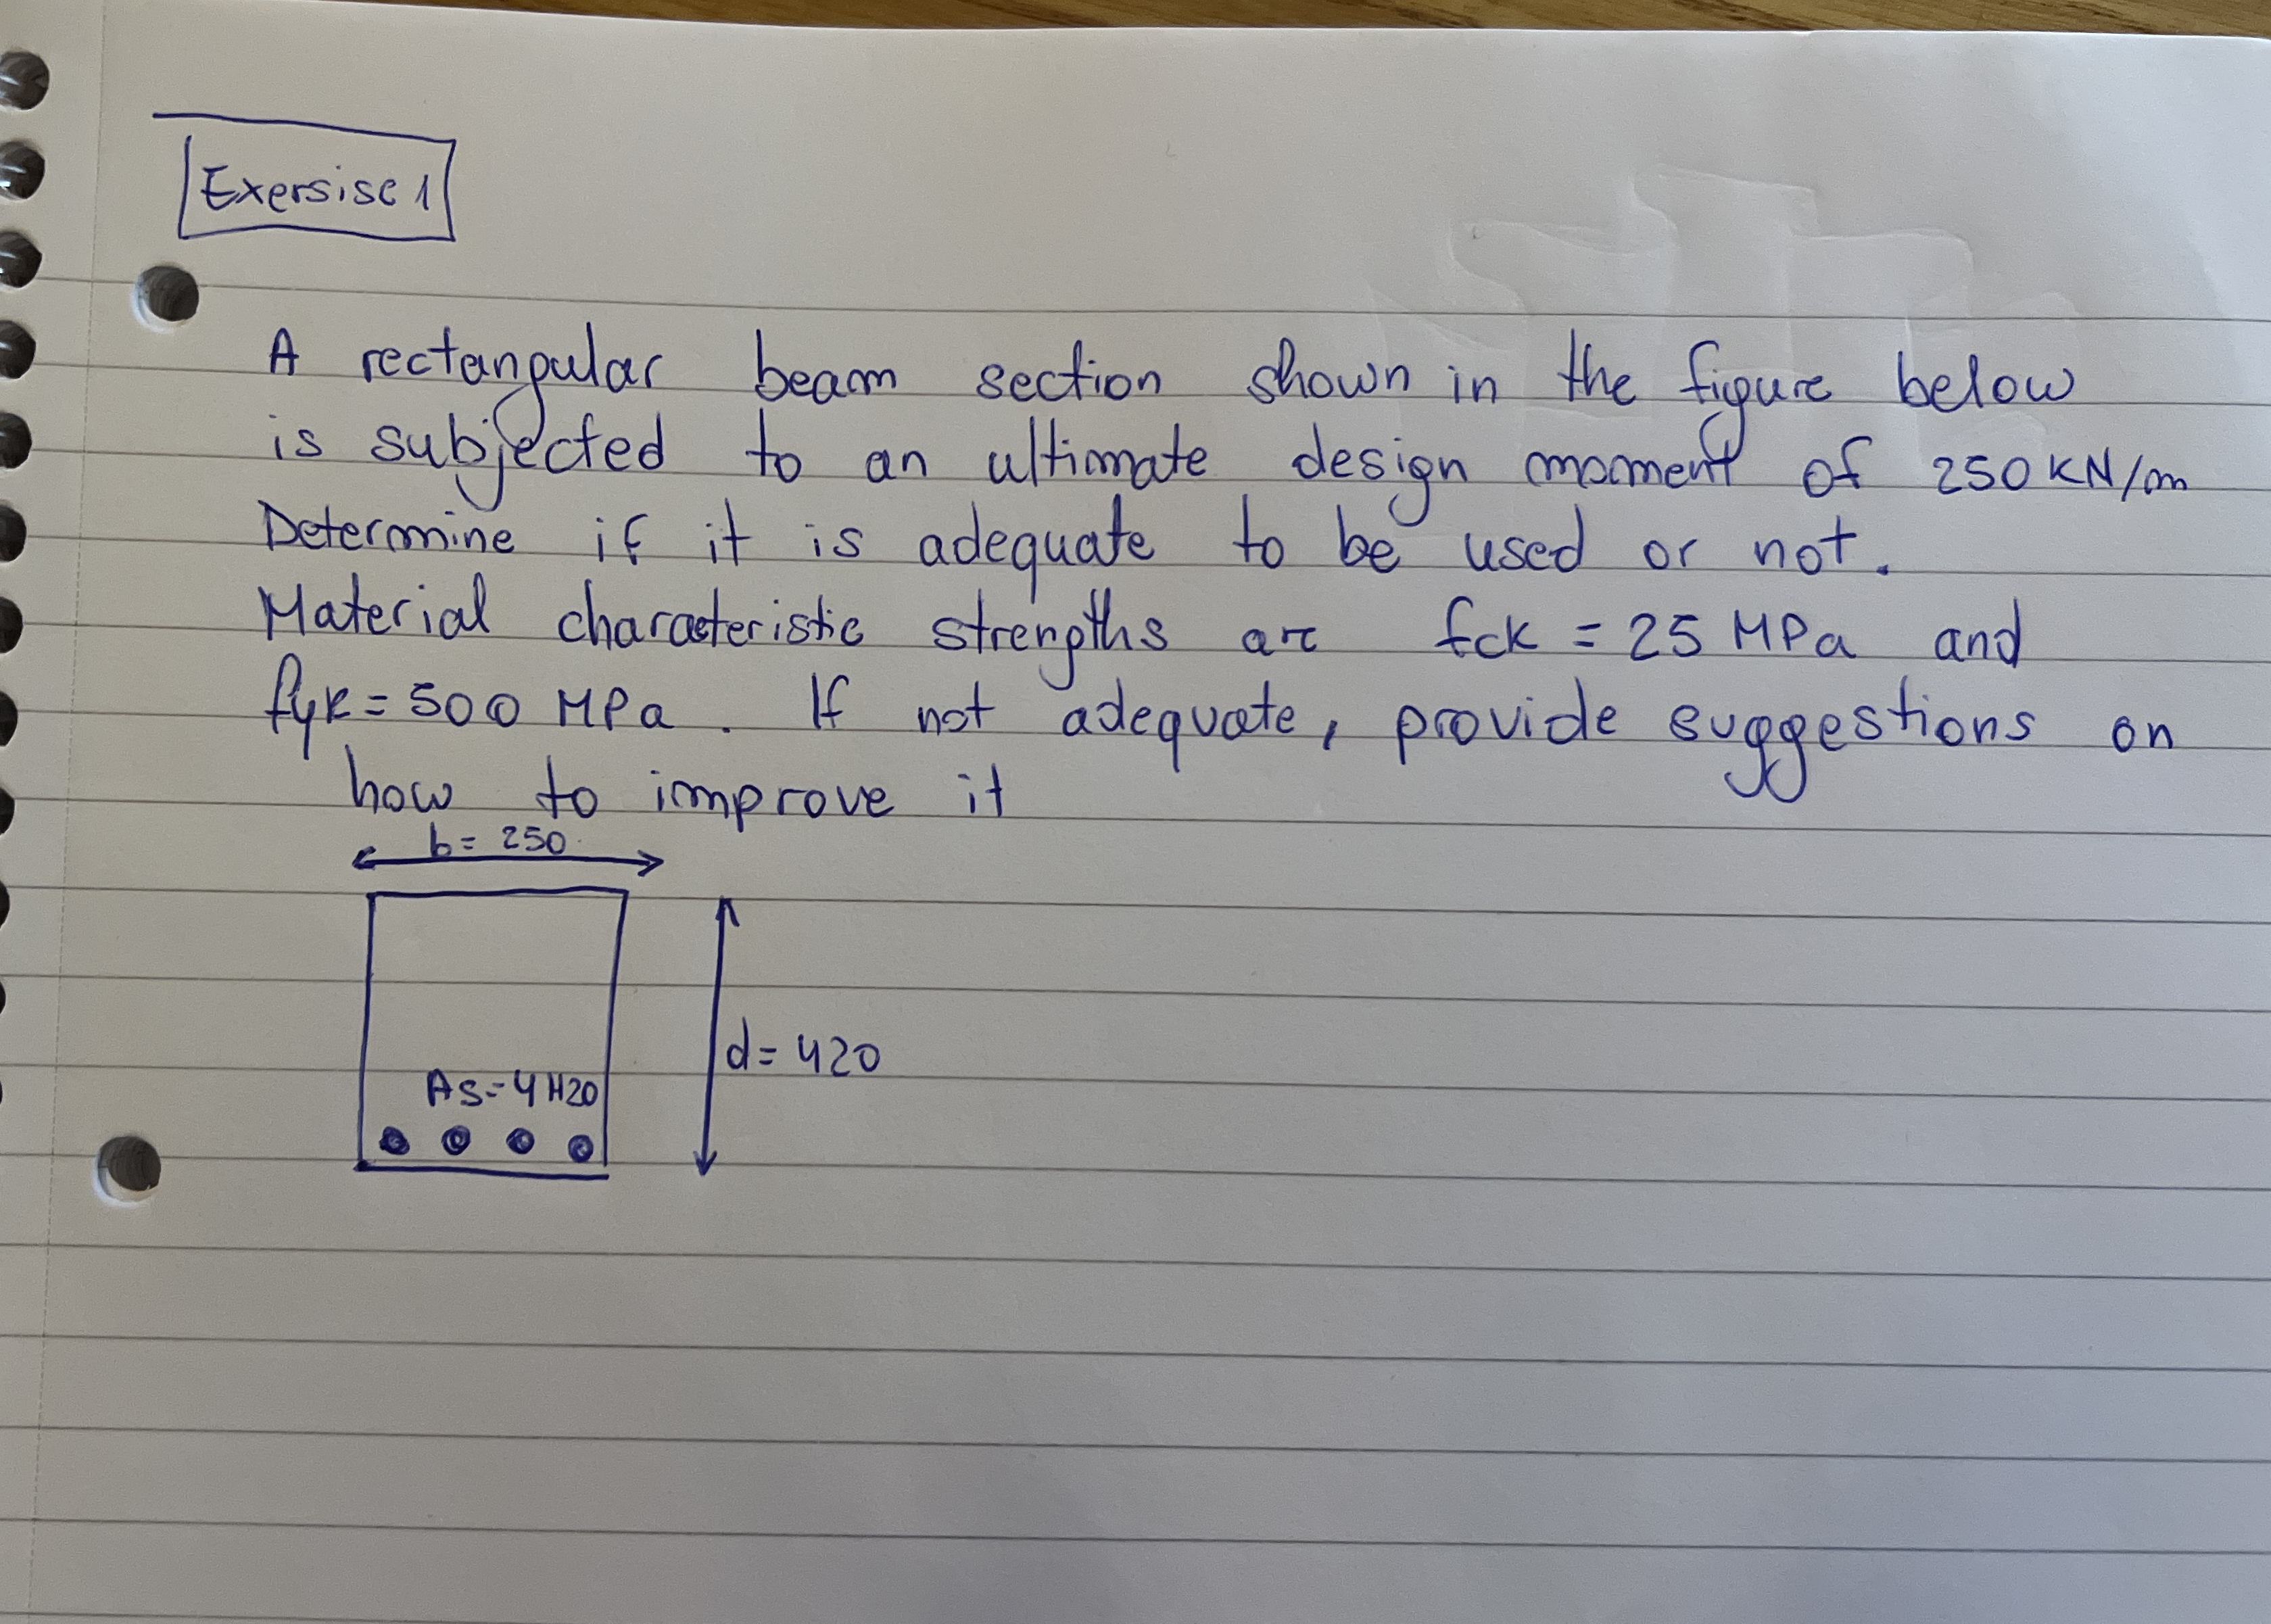 Exersise 1
A rectangular beam section shown in the figure below
is subjected to an ultimate design moment of 250 KN/m
Determine if it is adequate to be used or not.
Material characteristic strengths are fck = 25 MPa and
fyk = 500 MPa. If not adequate, provide suggestions on
how to improve it
b = 250
d = 420
As = 4H20